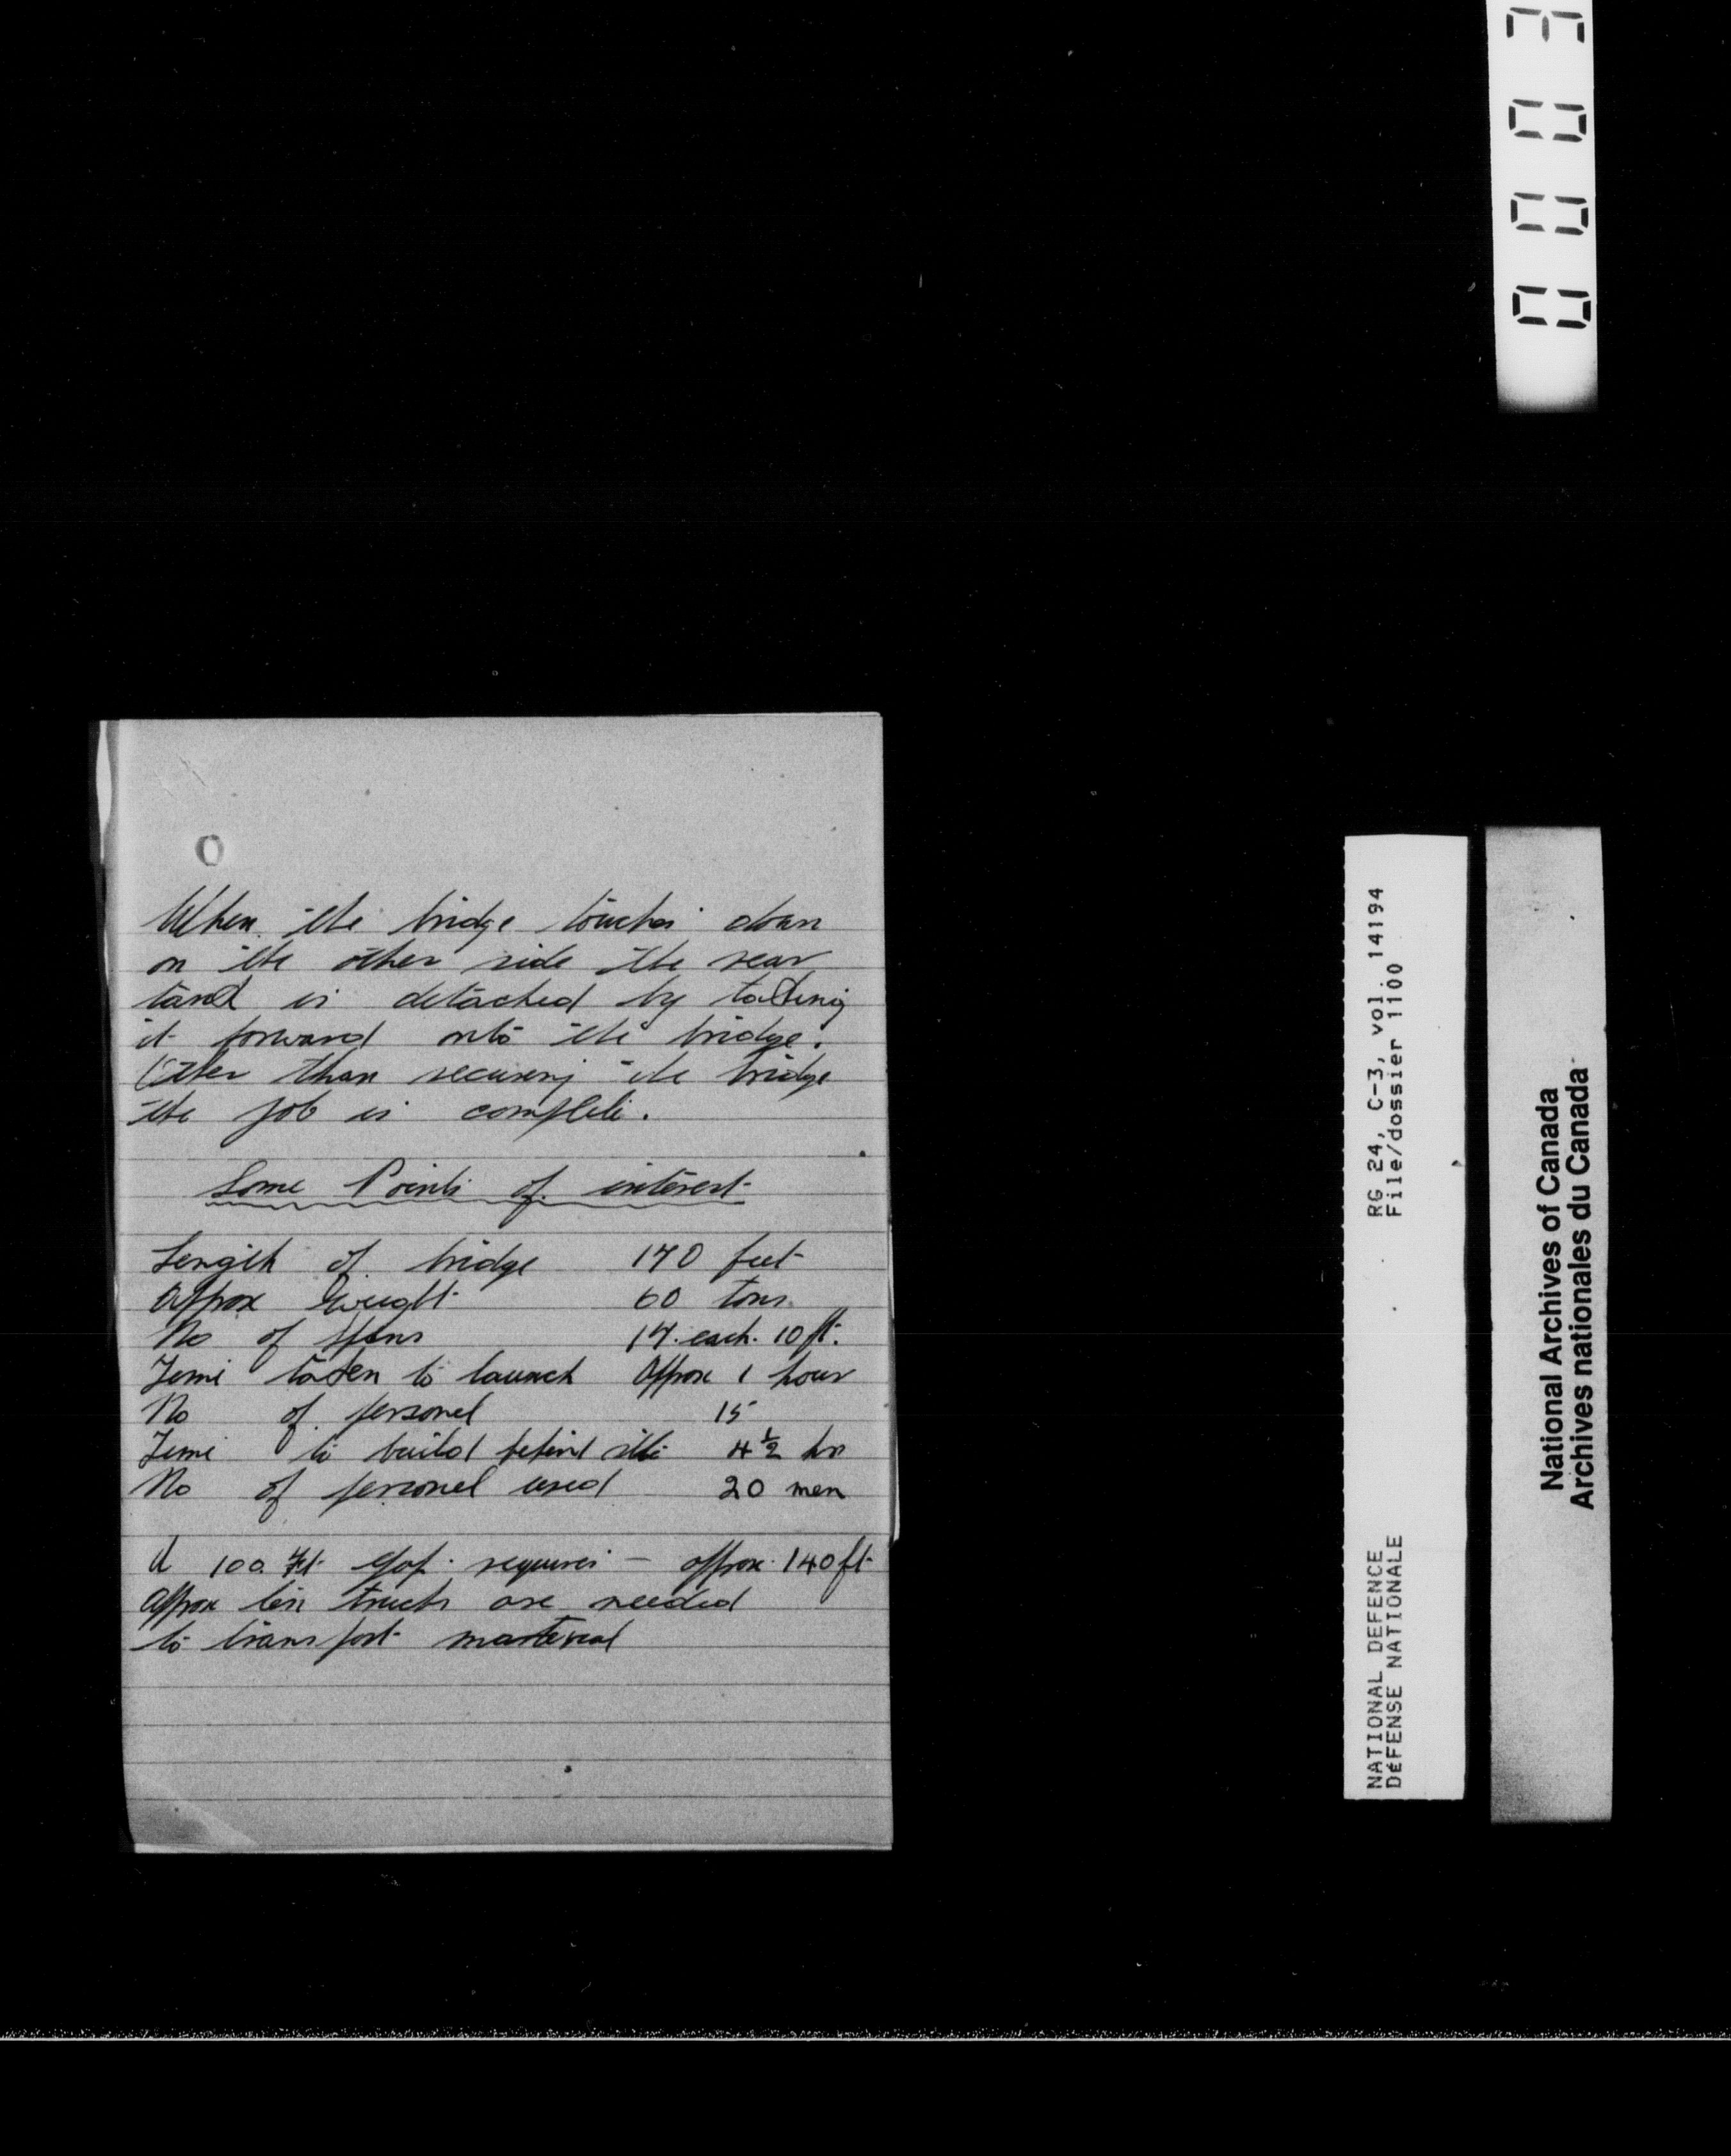 When the bridge touches down
on the other side the rear
tank is detached by taking
it forward onto the bridge.
Other than securing the bridge
the job is complete.
Some Points of interest
Length of bridge 140 feet
Approx weight 60 tons
No of spans 14 each 10 ft.
Time taken to launch Approx 1 hour
No of personel 15
Time to build behind site 4 1/2 hrs
No of personel used 20 men
A 100 ft gap requires - approx 140 ft
Approx ten trucks are needed
to transport material
0003
RG 24, C-3, vol. 14194
File/dossier 1100
NATIONAL DEFENCE
DéFENSE NATIONALE
National Archives of Canada
Archives nationales du Canada